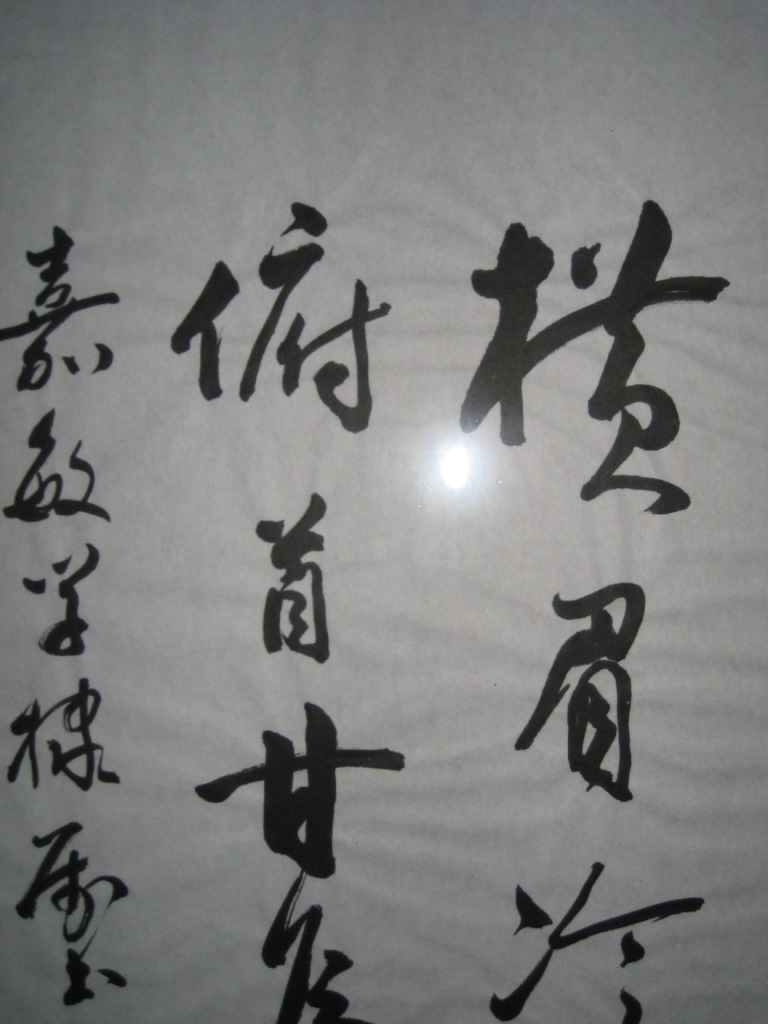 横眉冷
俯首甘
嘉敏学棣属